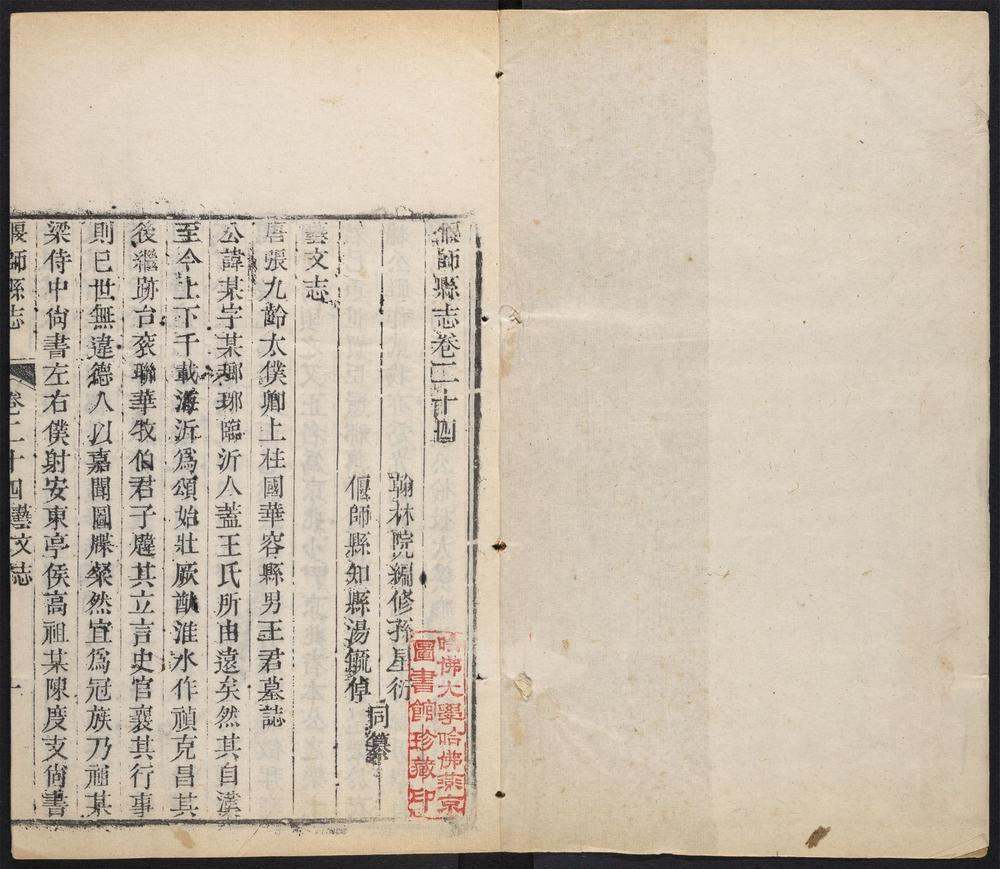 偃師縣志卷二十四
翰林院編修孫星衍
偃師縣知縣湯毓倬
同纂
藝文志
唐張九齡太僕卿上柱國華容縣男王君墓誌
公諱某字某瑯琊臨沂人蓋王氏所由遠矣然其自漢
至今上下千載海沂爲頌始壯厥猷淮水作禎克昌其
後繼跡台衮聯華牧伯君子韙其立言史官襄其行事
則已世無違德人以嘉聞圖牒粲然宜爲冠族乃祖某
梁侍中尙書左右僕射安東亭侯高祖某陳度支尙書
偃師縣志
卷二十四藝文志
一
哈佛大學哈佛燕京
圖書館珍藏印